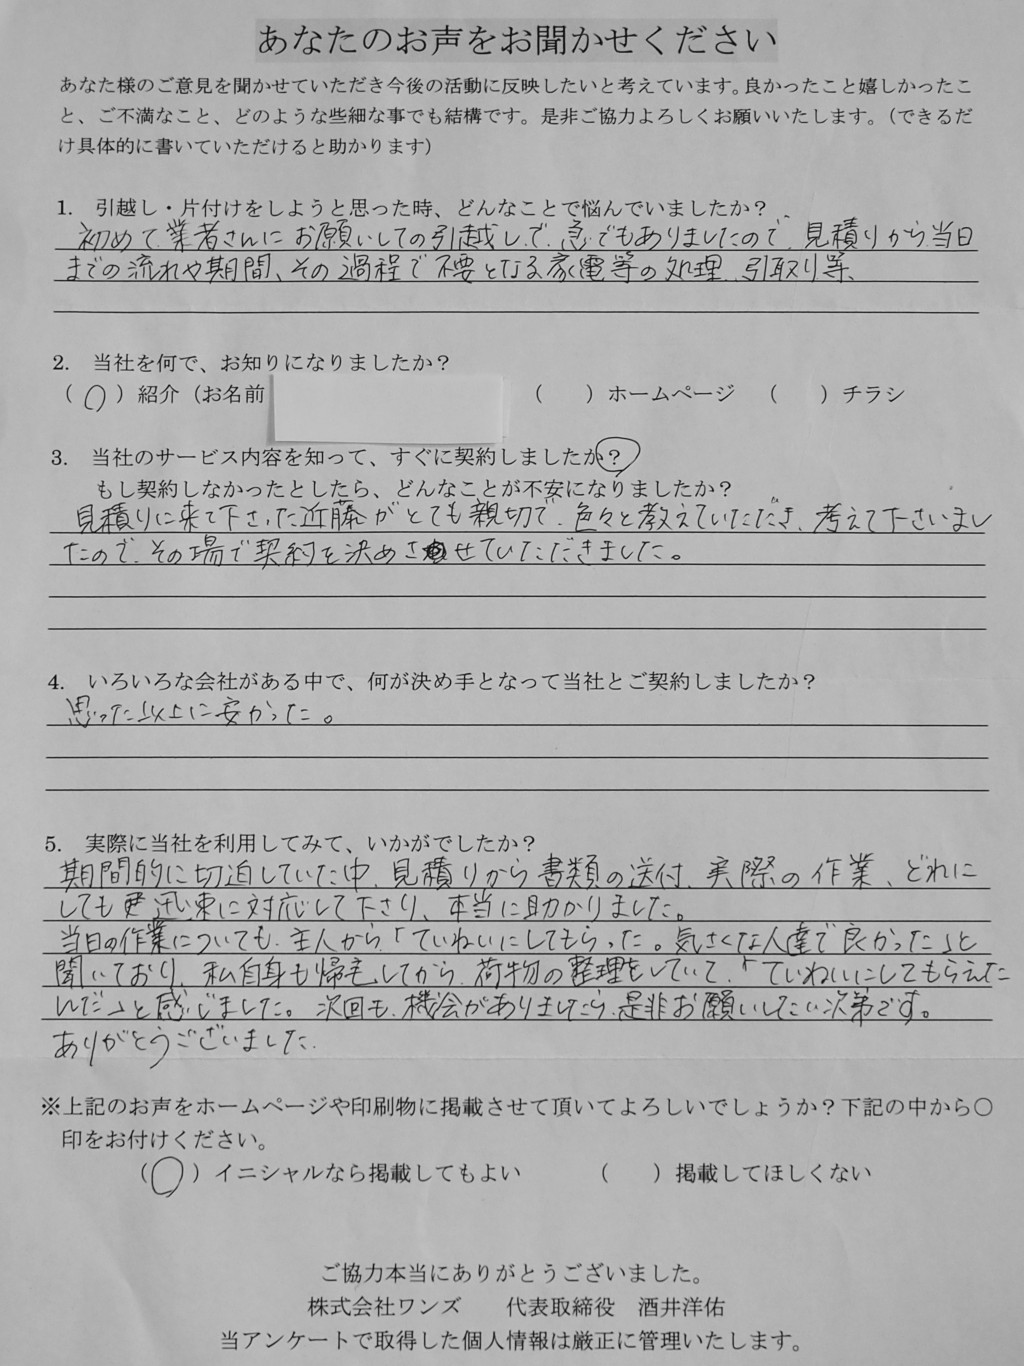 あなたのお声をお聞かせください
あなた様のご意見を聞かせていただき今後の活動に反映したいと考えています。良かったこと嬉しかったこ
と、ご不満なこと、どのような些細な事でも結構です。是非ご協力よろしくお願いいたします。（できるだ
け具体的に書いていただけると助かります）
1. 引越し・片付けをしようと思った時、どんなことで悩んでいましたか？
初めて、業者さんにお願いしての引越しで、急でもありましたので、見積りから当日
までの流れや期間、その過程で不要となる家電等の処理、引取り等、
2. 当社を何で、お知りになりましたか？
（ ○ ）紹介（お名前 （ ）ホームページ （ ）チラシ
3. 当社のサービス内容を知って、すぐに契約しましたか？
もし契約しなかったとしたら、どんなことが不安になりましたか？
見積りに来て下さった近藤がとても親切で、色々と教えていただき、考えて下さいまし
たので、その場で契約を決めさせていただきました。
4. いろいろな会社がある中で、何が決め手となって当社とご契約しましたか？
思った以上に安かった。
5. 実際に当社を利用してみて、いかがでしたか？
期間的に切迫していた中、見積りから書類の送付、実際の作業、どれに
しても迅速に対応して下さり、本当に助かりました。
当日の作業についても、主人から「ていねいにしてもらった。気さくな人達で良かった」と
聞いており、私自身も帰宅してから、荷物の整理をしていて、「ていねいにしてもらえた
んだ」と感じました。次回も、機会がありましたら、是非お願いしたい次第です。
ありがとうございました。
※上記のお声をホームページや印刷物に掲載させて頂いてよろしいでしょうか？下記の中から○
印をお付けください。
（ ○ ）イニシャルなら掲載してもよい （ ）掲載してほしくない
ご協力本当にありがとうございました。
株式会社ワンズ 代表取締役 酒井洋佑
当アンケートで取得した個人情報は厳正に管理いたします。